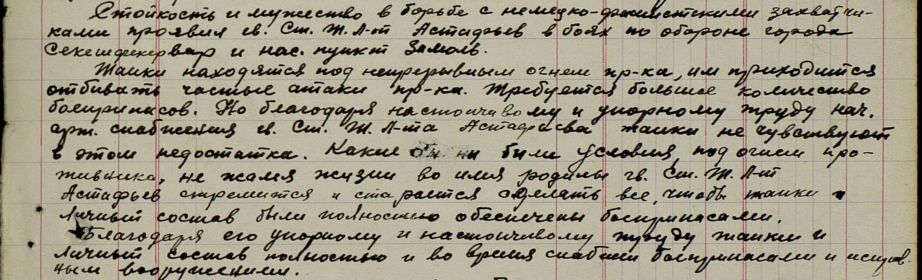 Стойкость и мужество в борьбе с немецко-фашистскими захватчи-
ками проявил гв. Ст. Т. Л-т Астафьев в боях по обороне города
Секешфехервар и нас. пункт Замоль.
Танки находятся под непрерывным огнем пр-ка, им приходится
отбивать частые атаки пр-ка. Требуется большое количество
боеприпасов. Но благодаря настойчивому и упорному труду нач.
арт. снабжения гв. Ст. Т. Л-та Астафьева танки не чувствуют
в этом недостатка. Какие бы ни были условия, под огнем про-
тивника, не жалея жизни во имя родины гв. Ст. Т. Л-т
Астафьев стремится и старается сделать все, чтобы танки и
личный состав были полностью обеспечены боеприпасами.
Благодаря его упорному и настойчивому труду танки и
личный состав полностью и во время снабжены боеприпасами и исправ-
ным вооружением.